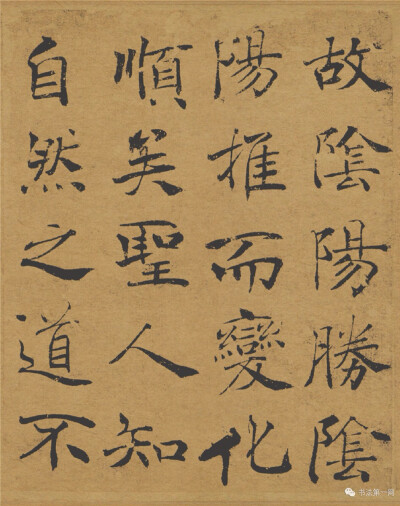 故陰陽勝陰
陽推而變化
順矣聖人知
自然之道不
书法第一网